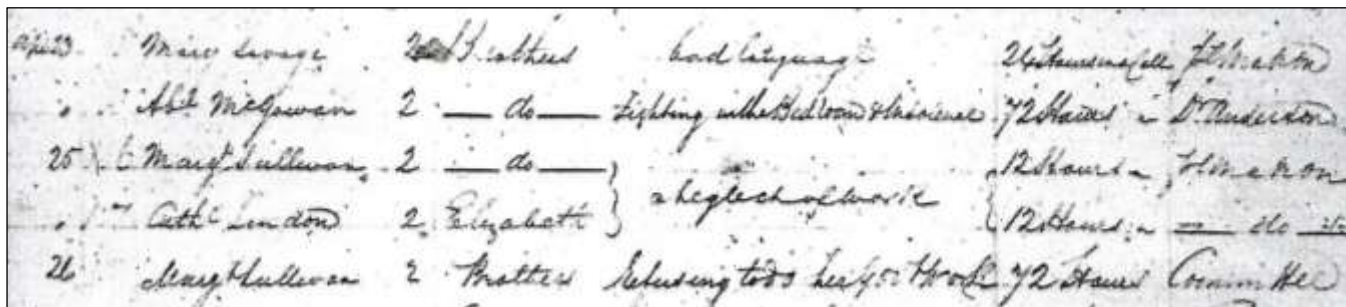 April 23 Mary Savage 2 Brothers bad language 24 Hours in a Cell
" Abl McGowan 2 — do — Fighting in the Bedroom & 72 Hours " Dr Anderson
25 Margt Sullivan 2 — do — } neglect of work { 12 Hours "
" Cathe London 2 Elizabeth } { 12 Hours " — do —
26 Margt Sullivan 2 Brothers Refusing to do her Work 72 Hours Committee